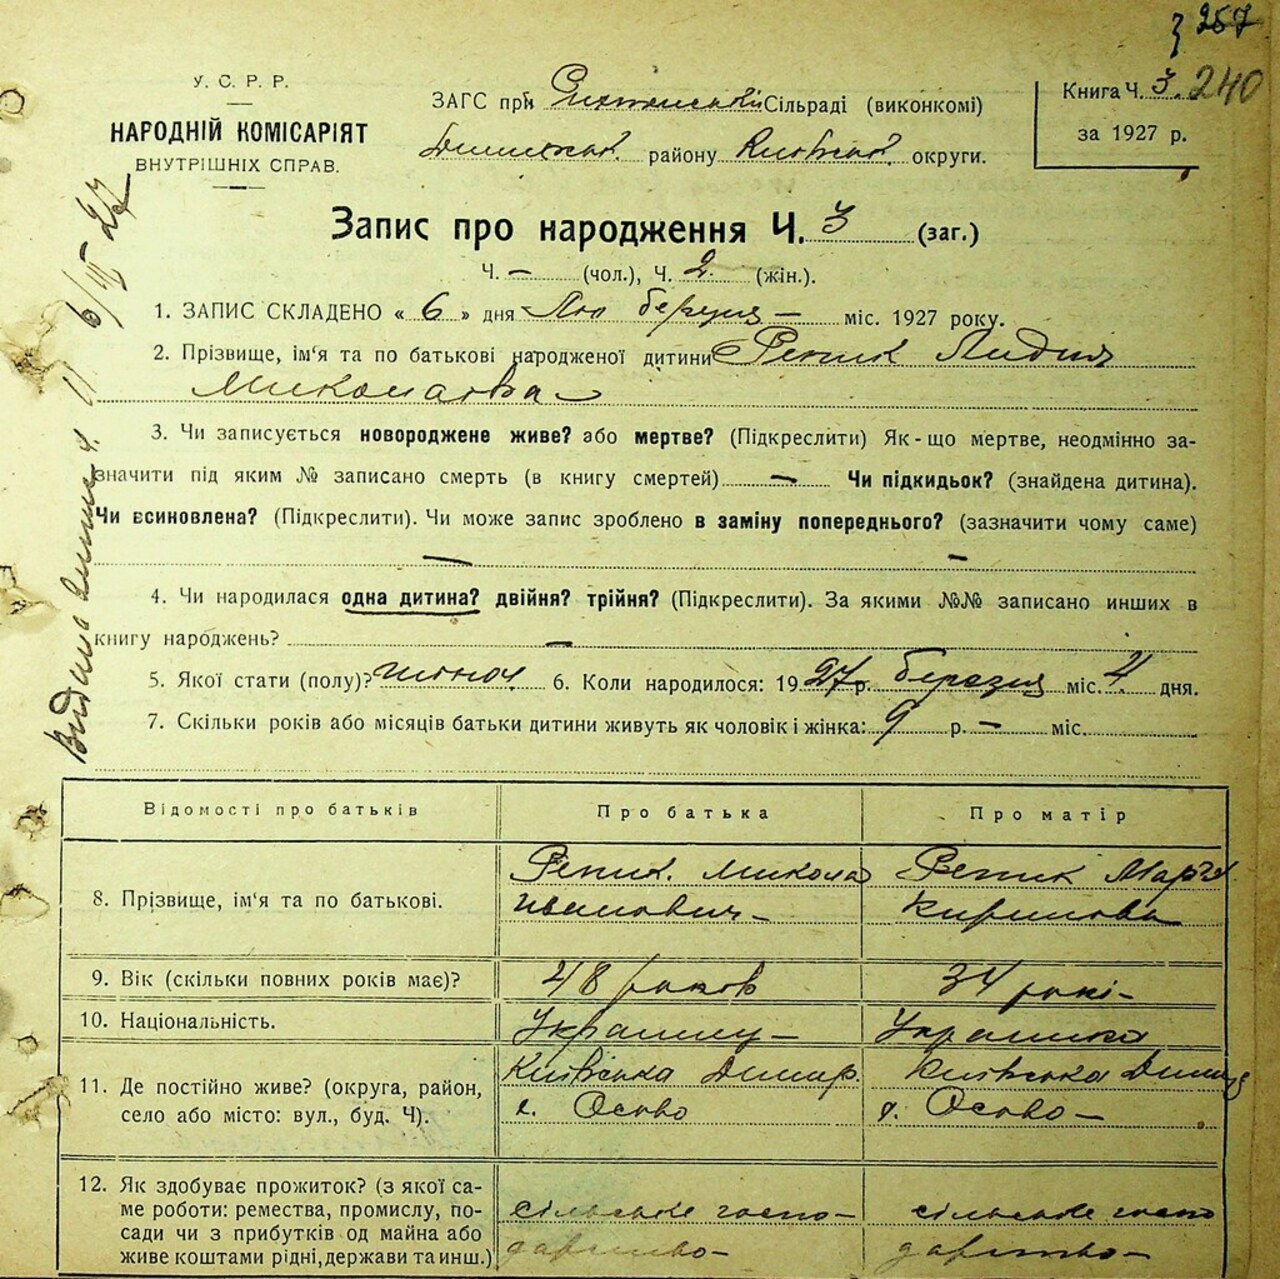 з 257
240
У. С. Р. Р.
НАРОДНІЙ КОМІСАРІЯТ
ВНУТРІШНІХ СПРАВ.
ЗАГС при Сільраді (виконкомі)
району Київськ. округи.
Книга Ч. 3.
за 1927 р.
Запис про народження Ч. 3 (заг.)
Ч. — (чол.), Ч. 2. (жін.).
1. ЗАПИС СКЛАДЕНО « 6 » дня березня — міс. 1927 року.
2. Прізвище, ім'я та по батькові народженої дитини Репик Лидия
Миколаевна
3. Чи записується новороджене живе? або мертве? (Підкреслити) Як-що мертве, неодмінно за-
значити під яким № записано смерть (в книгу смертей) — Чи підкидьок? (знайдена дитина).
Чи всиновлена? (Підкреслити). Чи може запис зроблено в заміну попереднього? (зазначити чому саме)
— —
4. Чи народилася одна дитина? двійня? трійня? (Підкреслити). За якими №№ записано инших в
книгу народжень? —
5. Якої стати (полу)? жіноч. 6. Коли народилося: 1927 р. березня міс. 4 дня.
7. Скільки років або місяців батьки дитини живуть як чоловік і жінка: 9 р. — міс.
Відомості про батьків Про батька Про матір
8. Прізвище, ім'я та по батькові. Репик. Микола Репик
Иванович — Кирилова
9. Вік (скільки повних років має)? 48 раков 34 рокі —
10. Національність. Украинка
11. Де постійно живе? (округа, район, Київська Димир. Київська
село або місто: вул., буд. Ч). с. Осово с. Осово —
12. Як здобуває прожиток? (з якої са-
ме роботи: ремества, промислу, по- сільське госпо- сільське госпо
сади чи з прибутків од майна або
живе коштами рідні, держави та инш.) дарство — дарство —
6/III 27